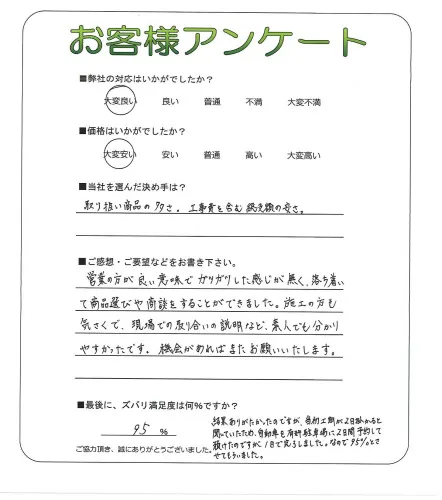 お客様アンケート
■弊社の対応はいかがでしたか？
大変良い 良い 普通 不満 大変不満
■価格はいかがでしたか？
大変安い 安い 普通 高い 大変高い
■当社を選んだ決め手は？
取り扱い商品の多さ。工事費を含む総支額の安さ。
■ご感想・ご要望などをお書き下さい。
営業の方が良い意味でガリガリした感じが無く、落ち着い
て商品選びや商談をすることができました。施工の方も
気さくで、現場での取り合いの説明など、素人でも分かり
やすかったです。機会があればまたお願いいたします。
■最後に、ズバリ満足度は何％ですか？
95 %
結果ありがたかったのですが、当初工期が2日掛かると
聞いていたため、自動車を有料駐車場に2日間予約して
頂けたのですが1日で完了しました。なので95％とさ
せてもらいました。
ご協力頂き、誠にありがとうございました。